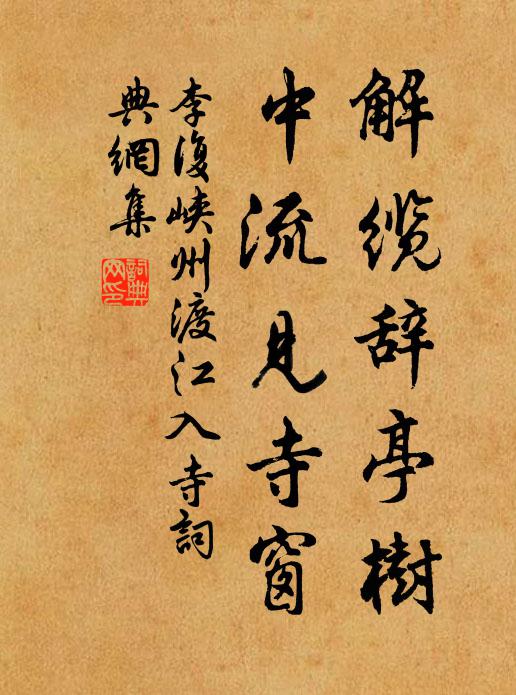 解缆辞亭樹
中流見寺窗
李復峽州渡江入寺詞
典網集
詞典网印